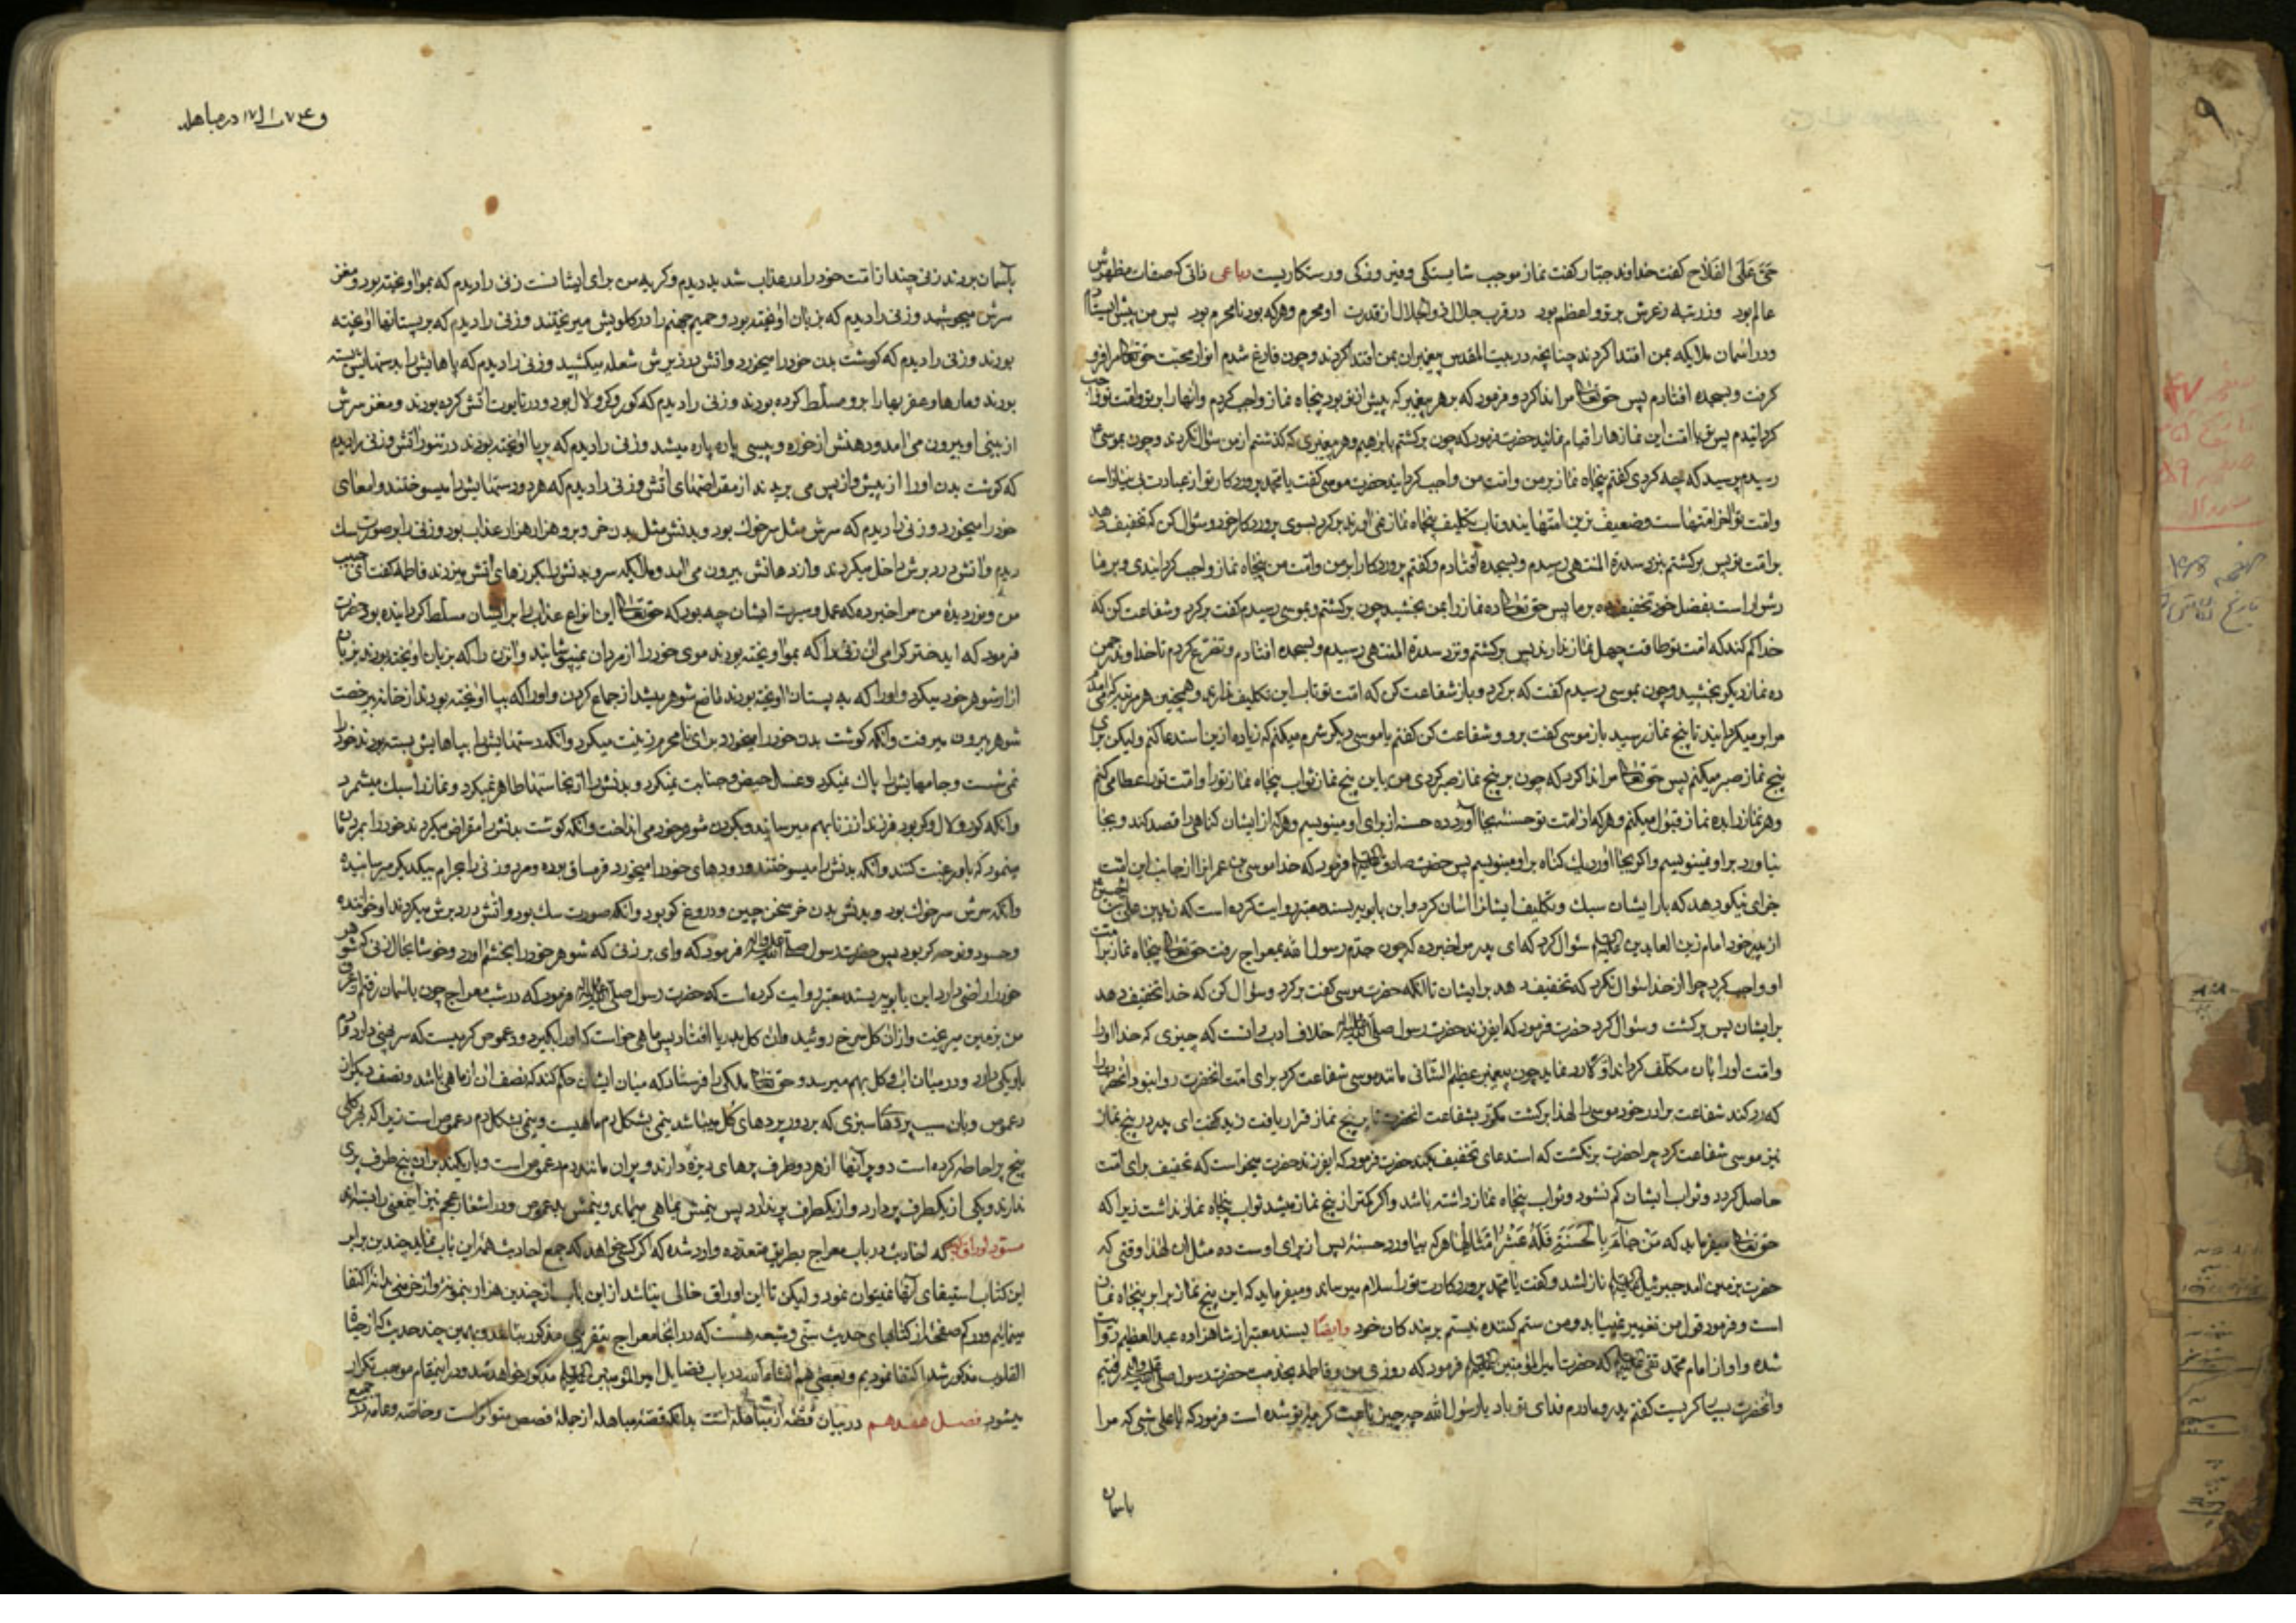 حَیَّ عَلَی الفَلَاح کفت خداوند جبّار کفت نماز موجب شایستکی و فیروزکی و رستکاریست رباعی ذاتی که صفات مظهرش
عالم بود وز رتبه ز عرش برتر و اعظم بود در قرب جلال ذو الجلال از قدرت او محرم و هر که بود نامحرم بود پس من پیش
و در اسمان ملایکه بمن اقتدا کردند چنانچه در بیت المقدس پیغمبران بمن اقتدا کردند و چون فارغ شدم انوار محبّت حق تعالی مرا فرو
کرفت و بسجده افتادم پس حق تعالی مرا ندا کرد و فرمود که بر هر پیغمبر که پیش از تو بود پنجاه نماز واجب کردم و انها را بر تو و امّت تو واجب
کردانیدم پس تو با امّت این نمازها را قیام نمائید حضرت فرمود که چون برکشتم بابرهیم و هر پیغمبری که کذشتم از من سؤال نکردند و چون بموسی
رسیدم پرسید که چه کردی کفتم پنجاه نماز بر من و امّت من واجب کردانید حضرت موسی کفت یا محمّد پروردکار تو از عبادت بی نیاز است
و امّت تو اخر امّتهاست و ضعیف ترین امّتهایند و تاب تکلیف پنجاه نماز نمی آورند برکرد بسوی پروردکار خود و سؤال کن که تخفیف دهد
بر امّت تو پس برکشتم بنزد سدرة المنتهی رسیدم و بسجده افتادم و کفتم پروردکارا بر من و امّت من پنجاه نماز واجب کردانیدی و بر ما
دشوار است بفضل خود تخفیف ده بر ما پس حق تعالی ده نماز را بمن بخشید چون برکشتم و بموسی رسیدم کفت برکرد و شفاعت کن که
خدا کم کند که امّت تو طاقت چهل نماز ندارند پس برکشتم و نزد سدرة المنتهی رسیدم و بسجده افتادم و تضرّع کردم تا خداوند رحمن
ده نماز دیکر بخشید و چون بموسی رسیدم کفت که برکرد و باز شفاعت کن که امّت تو تاب این تکلیف ندارند و همچنین هر مرتبه
مرا بر میکردانید تا پنج نماز رسید باز موسی کفت برو و شفاعت کن کفتم یا موسی دیکر شرم میکنم که زیاده ازین استدعا کنم و لیکن برای
پنج نماز صبر میکنم پس حق تعالی مرا ندا کرد که چون بر پنج نماز صبر کردی من باین پنج نماز ثواب پنجاه نماز تو را و امّت تو را عطا می کنم
و هر نماز را بده نماز قبول میکنم و هر که از امّت تو حسنۀ بجا آورد ده حسنه از برای او مینویسیم و هر که از ایشان کناهی را قصد کند و بجا
نیاورد بر او نمینویسیم و اکر بجا آورد یک کناه بر او مینویسیم پس حضرت صادق فرمود که خدا موسی بن عمران را از جانب این امّت
جزای نیکو دهد که بار ایشان سبک و تکلیف ایشانرا اسان کرد و ابن بابویه بسند معتبر روایت کرده است که زید بن علی بن الحسین
از پدر خود امام زین العابدین علیه السلام سؤال کرد که ای پدر مرا خبر ده که چون جدّم رسول الله بمعراج رفت حق تعالی پنجاه نماز بر امّت
او واجب کرد چرا از خدا سؤال نکرد که تخفیف دهد بر ایشان تا انکه حضرت موسی کفت برکرد و سؤال کن که خدا تخفیف دهد
بر ایشان پس برکشت و سؤال کرد حضرت فرمود که ایفرزند حضرت رسول خلاف ادب دانست که چیزی که خدا او را
و امّت او را بان مکلّف کرداند او رد نماید چون پیغمبر عظیم الشّانی مانند موسی شفاعت کرد برای امّت انحضرت روا نبود انحضرت را
که رد کند شفاعت برادر خود موسی را لهذا برکشت مکرّر بشفاعت انحضرت تا بر پنج نماز قرار یافت زید کفت ای پدر در پنج نماز
نیز موسی شفاعت کرد چرا حضرت برنکشت که استدعای تخفیف بکند حضرت فرمود که ایفرزند حضرت میخواست که تخفیف برای امّت
حاصل کردد و ثواب ایشان کم نشود و ثواب پنجاه نماز داشته باشد و اکر کمتر از پنج نماز میشد ثواب پنجاه نماز نداشت زیرا که
حق تعالی میفرماید که مَنْ جَآءَ بِالْحَسَنَةِ فَلَهُ عَشْرُ اَمْثَالِهَا هر که بیاورد حسنۀ پس از برای اوست ده مثل ان لهذا وقتی که
حضرت بزمین امد جبرئیل نازل شد و کفت یا محمّد پروردکارت تو را سلام میرساند و میفرماید که این پنج نماز برابر پنجاه نماز
است و فرمود قول من تغییر نمییابد و من ستم کننده نیستم بر بندکان خود وایضًا بسند معتبر از شاهزاده عبد العظیم روایت
شده و او از امام محمّد تقی که حضرت امیر المؤمنین فرمود که روزی من و فاطمه بخدمت حضرت رسول رفتیم
و انحضرت بسیار کریست کفتم پدر و مادرم فدای تو باد یا رسول الله چه چیز باعث کریۀ تو شده است فرمود که یا علی شبی که مرا
باسمان
و ۷۴ ف ۱۷ در مباهله
باسمان بردند زنی چند از امّت خود را در عذاب شدید دیدم و کریه من برای ایشانست زنی را دیدم که بمو اویخته بود و مغز
سرش میجوشید و زنی را دیدم که بزبان اویخته بود و حمیم جهنم را در کلویش میریختند و زنی را دیدم که بر پستانها اویخته
بودند و زنی را دیدم که کوشت بدن خود را میخورد و اتش در زیرش شعله میکشید و زنی را دیدم که پاهایش را بدستهایش بسته
بودند و مارها و عقربها را برو مسلّط کرده بودند و زنی را دیدم که کور و کر و لال بود و در تابوت اتش کرده بودند و مغز سرش
از بینی او بیرون می امد و بدنش از خوره و پیسی پاره پاره میشد و زنی را دیدم که بر پا اویخته بودند در تنور اتش و زنی را دیدم
که کوشت بدن او را از پیش و از پس می بریدند از مقراضهای اتش و زنی را دیدم که هر دو دستهایش را میسوختند و امعای
خود را میخورد و زنی را دیدم که سرش مثل سر خوک بود و بدنش مثل بدن خر و برو هزار هزار عذاب بود و زنی را بر صورت سک
دیدم و اتش در دبرش داخل میکردند و از دهانش بیرون می امد و ملایکه سر و بدنش را بکرزهای اتش میزدند فاطمه کفت ای حبیب
من و نور دیدۀ من مرا خبر ده که عمل و سیرت ایشان چه بود که حق تعالی این انواع عذاب را بر ایشان مسلّط کردانیده بود حضرت
فرمود که ای دختر کرامی ان زنی را که بمو اویخته بودند موی خود را از مردان نمیپوشانید و انزن را که بزبان اویخته بودند بزبان
ازار شوهر خود میکرد و او را که به پستان اویخته بودند مانع شوهر میشد از جماع کردن و او را که بپا اویخته بودند از خانه بیرخصت
شوهر بیرون میرفت و انکه کوشت بدن خود را میخورد برای نامحرم زینت میکرد و انکه دستهایش را بپاهایش بسته بودند خود را
نمی شست و جامهایش را پاک نمیکرد و غسل حیض و جنابت نمیکرد و بدنش را از نجاستها طاهر نمیکرد و نماز را سبک میشمرد
و انکه کور و لال و کر بود فرزند از زنا بهم میرساند و بکردن شوهر خود می انداخت و انکه کوشت بدنش را مقراض میکردند خود را بمردان
مینمود که باو رغبت کنند و انکه بدنش را میسوختند و رودهای خود را میخورد قرمساق بوده و مرد و زنی را بحرام بیکدیکر میرسانیده
و انکه سرش سر خوک بود و بدنش بدن خر سخن چین و دروغ کو بود و انکه صورت سک بود و اتش در دبرش میکردند او خواننده
و حسود و نوحه کر بود پس حضرت رسول فرمود که وای بر زنی که شوهر خود را بخشم اورد و خوشا بحال زنی که شوهر
خود را راضی دارد ابن بابویه بسند معتبر روایت کرده است که حضرت رسول فرمود که در شب معراج چون باسمان رفتم عرق
من بزمین میریخت و از ان کل سرخ روئید و ان کل بدریا افتاد پس ماهی خواست که او را بکیرد و دعموص کرمیست که سر پهنی دارد و دم
باریکی دارد و در میان اب و کل بهم میرسد و حق تعالی ملکی را فرستاد که میان ایشان حکم کند که نصف ان از ماهی باشد و نصف دیکر از
دعموص و بان سبب پردهاء سبزی که بر دور پردهای کل میباشد نیمی بشکل دم ماهیست و نیمی بشکل دم دعموص است زیرا که بهر کلی
پنج پر احاطه کرده است دو پر آنها از هر دو طرف پرهای ریزه دارند و بر ان مانند دم دعموص است و باریکند برآن پنج طرف پری
ندارند و یکی از یکطرف پر دارد و از یکطرف پر ندارد پس نیمش بماهی میماند و نیمش بدعموص و در اشعار عجم نیز اینمعنی را بسته اند
مسوّد اوراق کوید که احادیث در باب معراج بطریق متعدّده وارد شده که اکر کسی خواهد که جمیع احادیث همۀ این باب نماید چندین برابر
این کتاب استیفای آنها نمیتوان نمود و لیکن تا این اوراق خالی نباشد از این باب از چندین هزار بنمونه و از خرمنی بدانه اکتفا
مینمایم و در کم صفحۀ از کتابهای حدیث سنّی و شیعه هست که در انجا معراج بتقریبی مذکور نباشد و بهمین چند حدیث که از حیاة
القلوب مذکور شد اکتفا نمودیم و بعضی هم انشاء الله در باب فضایل امیر المؤمنین مذکور خواهد شد و در اینمقام موجب تکرار
میشود فصل هفدهم در بیان قصّه از مباهله است بدانکه قصّه مباهله از جملۀ قصص متواتر است و خاصّه و عامّه در جمیع